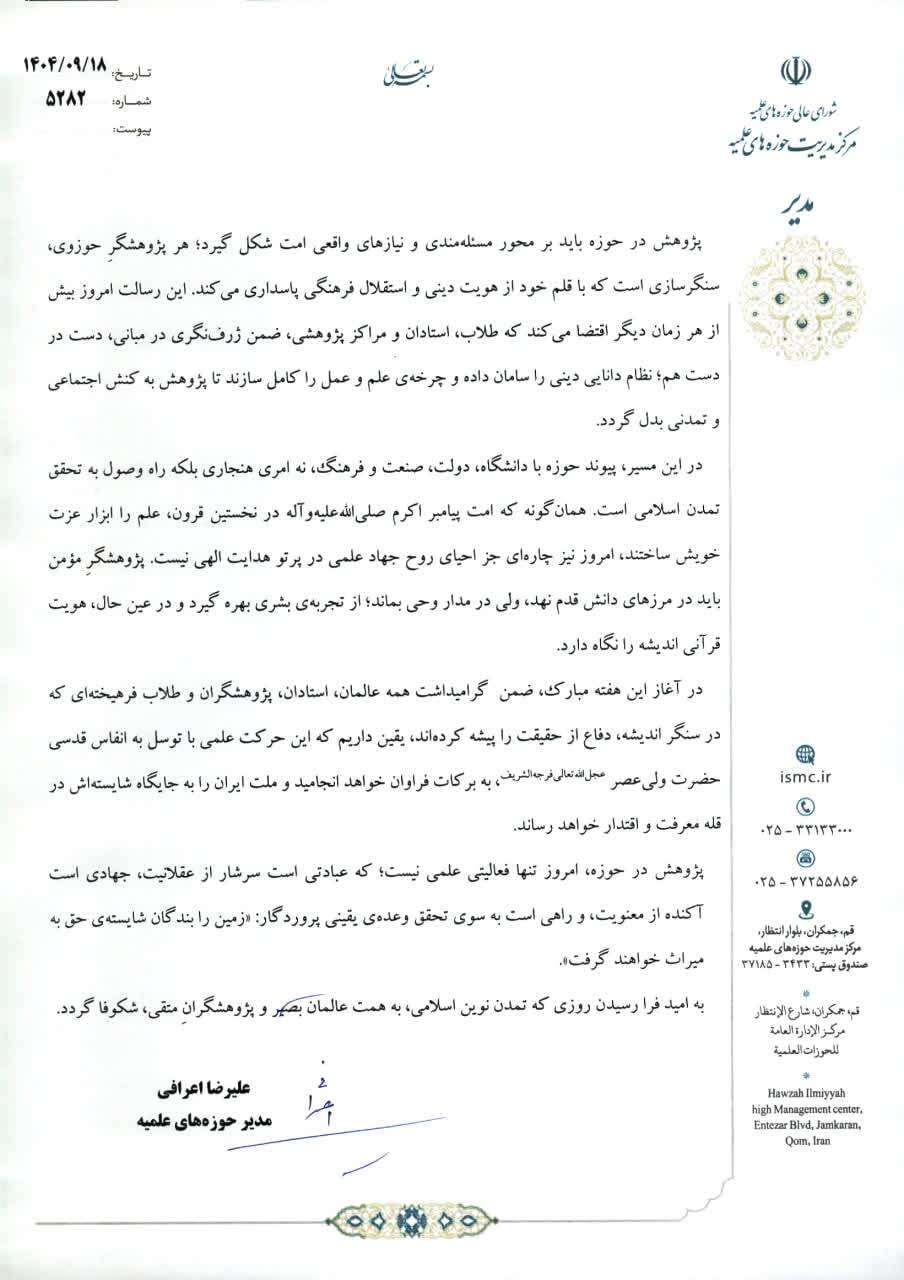 بسمه تعالی
شورای عالی حوزه های علمیه
مرکز مدیریت حوزه های علمیه
مدیر
تاریخ: ۱۴۰۴/۰۹/۱۸
شماره: ۵۲۸۲
پیوست:
پژوهش در حوزه باید بر محور مسئله‌مندی و نیازهای واقعی امت شکل گیرد؛ هر پژوهشگرِ حوزوی،
سنگرسازی است که با قلم خود از هویت دینی و استقلال فرهنگی پاسداری می‌کند. این رسالت امروز بیش
از هر زمان دیگر اقتضا می‌کند که طلاب، استادان و مراکز پژوهشی، ضمن ژرف‌نگری در مبانی، دست در
دست هم؛ نظام دانایی دینی را سامان داده و چرخه‌ی علم و عمل را کامل سازند تا پژوهش به کنش اجتماعی
و تمدنی بدل گردد.
در این مسیر، پیوند حوزه با دانشگاه، دولت، صنعت و فرهنگ، نه امری هنجاری بلکه راه وصول به تحقق
تمدن اسلامی است. همان‌گونه که امت پیامبر اکرم صلی‌الله‌علیه‌وآله در نخستین قرون، علم را ابزار عزت
خویش ساختند، امروز نیز چاره‌ای جز احیای روح جهاد علمی در پرتو هدایت الهی نیست. پژوهشگرِ مؤمن
باید در مرزهای دانش قدم نهد، ولی در مدار وحی بماند؛ از تجربه‌ی بشری بهره گیرد و در عین حال، هویت
قرآنی اندیشه را نگاه دارد.
در آغاز این هفته مبارک، ضمن گرامیداشت همه عالمان، استادان، پژوهشگران و طلاب فرهیخته‌ای که
در سنگر اندیشه، دفاع از حقیقت را پیشه کرده‌اند، یقین داریم که این حرکت علمی با توسل به انفاس قدسی
حضرت ولی‌عصر عجل‌الله‌تعالی‌فرجه‌الشریف، به برکات فراوان خواهد انجامید و ملت ایران را به جایگاه شایسته‌اش در
قله معرفت و اقتدار خواهد رساند.
پژوهش در حوزه، امروز تنها فعالیتی علمی نیست؛ که عبادتی است سرشار از عقلانیت، جهادی است
آکنده از معنویت، و راهی است به سوی تحقق وعده‌ی یقینی پروردگار: «زمین را بندگان شایسته‌ی حق به
میراث خواهند گرفت».
به امید فرا رسیدن روزی که تمدن نوین اسلامی، به همت عالمان بصیر و پژوهشگرانِ متقی، شکوفا گردد.
علیرضا اعرافی
مدیر حوزه‌های علمیه
ismc.ir
۰۲۵ - ۳۳۱۳۳۰۰۰
۰۲۵ - ۳۷۲۵۵۸۵۶
قم، جمکران، بلوار انتظار،
مرکز مدیریت حوزه‌های علمیه
صندوق پستی: ۳۴۳۳ - ۳۷۱۸۵
قم، جمکران، شارع الإنتظار
مرکز الإدارة العامة
للحوزات العلمية
Hawzah Ilmiyyah
high Management center,
Entezar Blvd, Jamkaran,
Qom, Iran